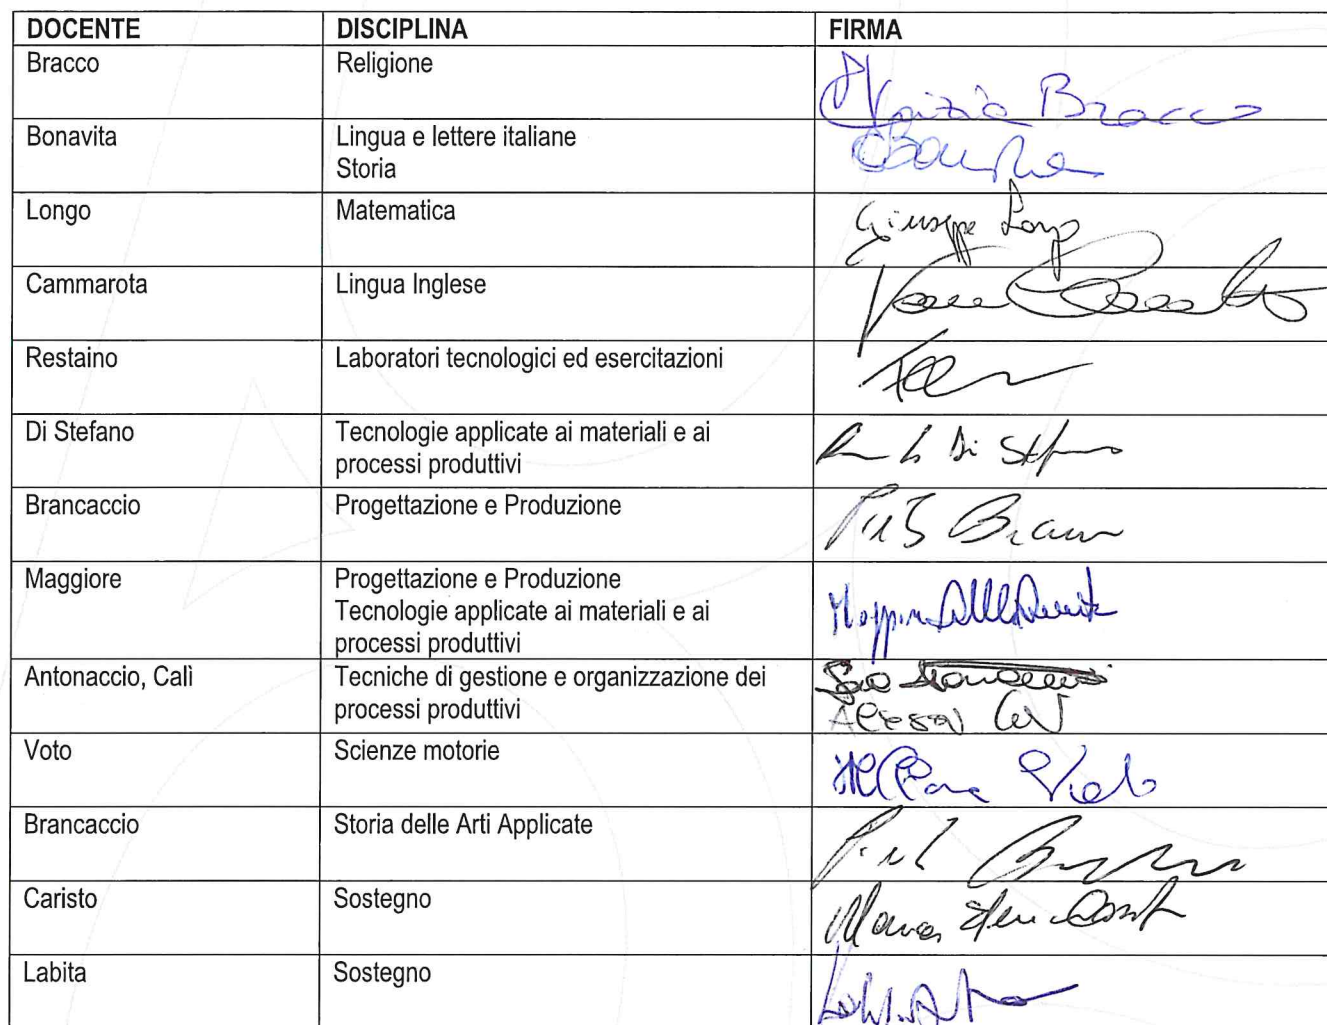 DOCENTE DISCIPLINA FIRMA
Bracco Religione Bracco
Bonavita Lingua e lettere italiane
Storia
Longo Matematica Giuseppe Longo
Cammarota Lingua Inglese
Restaino Laboratori tecnologici ed esercitazioni
Di Stefano Tecnologie applicate ai materiali e ai Di Stefano
processi produttivi
Brancaccio Progettazione e Produzione
Maggiore Progettazione e Produzione
Tecnologie applicate ai materiali e ai
processi produttivi
Antonaccio, Calì Tecniche di gestione e organizzazione dei
processi produttivi
Voto Scienze motorie
Brancaccio Storia delle Arti Applicate
Caristo Sostegno
Labita Sostegno